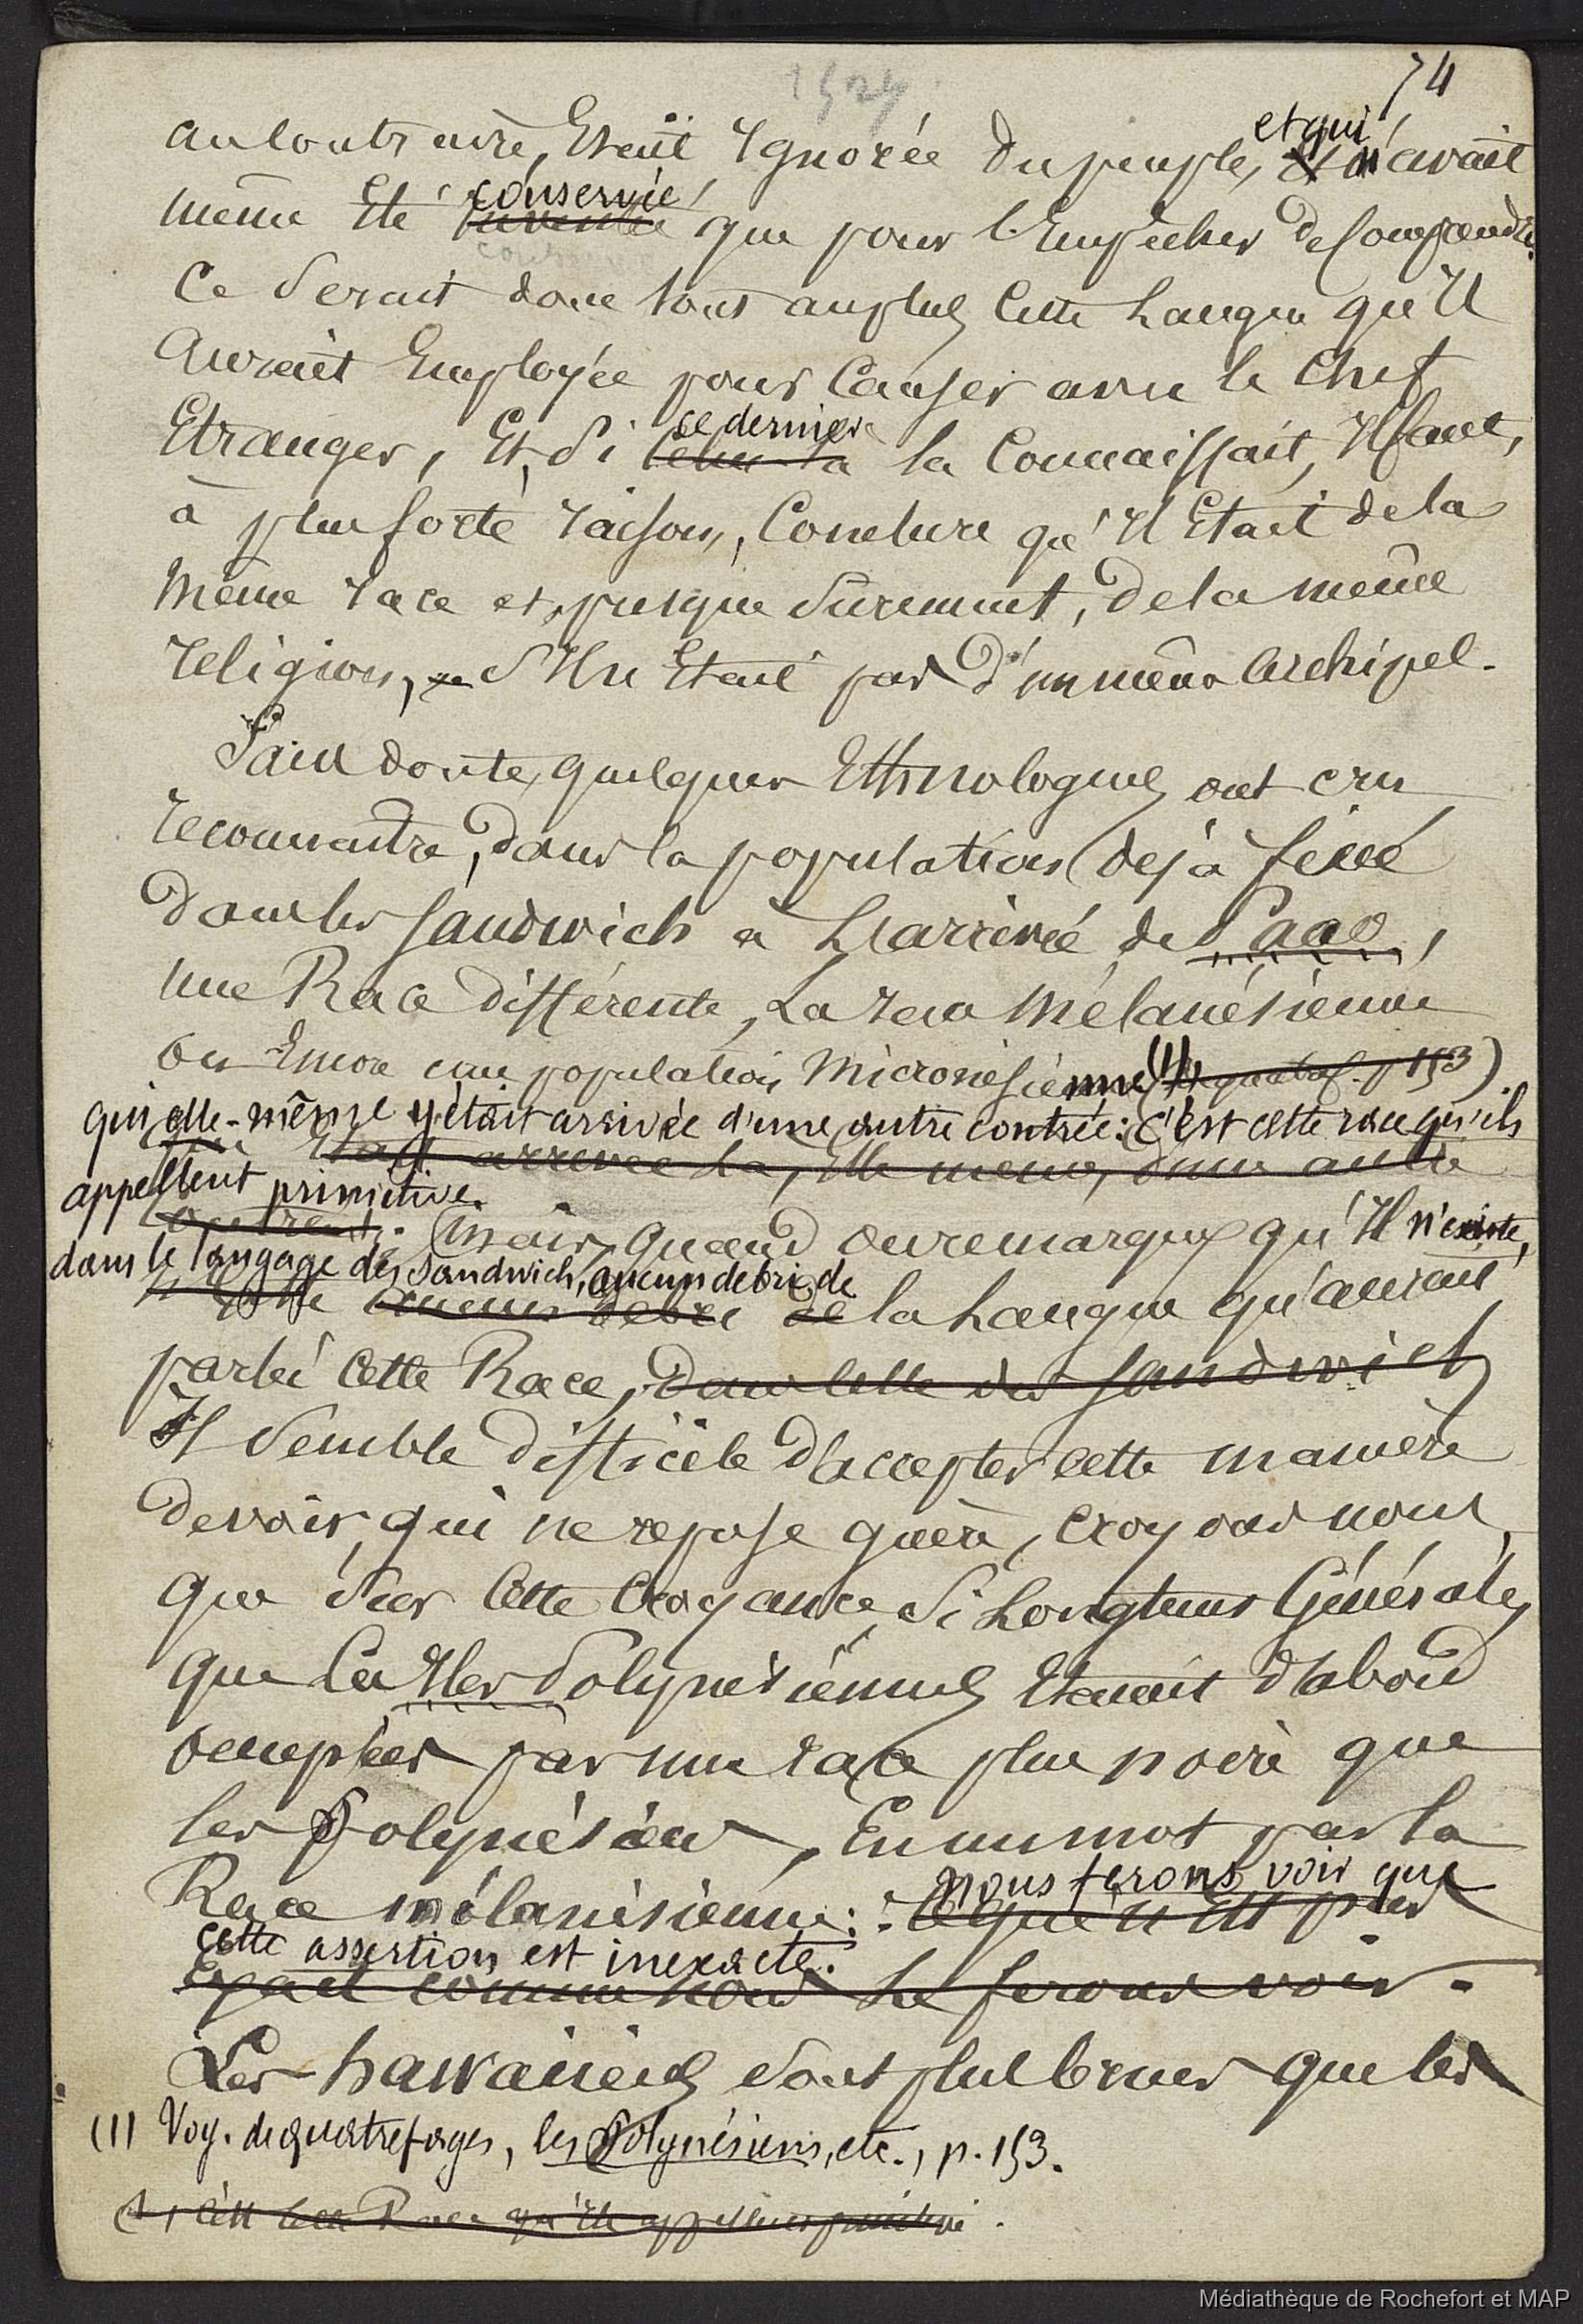 74
1524
au contraire, Etait Ignorée du peuple, et qui n'avait
même Eté conservée que pour l'Empêcher de comprendre.
Ce Serait donc tout au plus Cette Langue qu'Il
Aurait Employée pour Causer avec le Chef
Etranger, Et, Si celui-là ce dernier la Connaissait, Il faut,
à plus forte raison, Conclure qu'Il Etait de la
même race et, presque Surement, de la même
religion, S'Il n'Etait pas d'un même Archipel.
Sans doute, quelques Ethnologues ont cru
reconnaitre, dans la population déjà fixée
dans les Sandwich à L'arrivée de Paao,
une Race différente, La race Mélanésienne
ou Encore une population Micronésienne (1) (de quatref. p 153).
qui elle-même y était arrivée d'une autre contrée: c'est cette race qu'ils
Etait arrivée là, Elle même, d'une autre
appellent primitive.
contrée. Mais, quand on remarque qu'Il n'existe,
dans le langage des Sandwich, aucun debri de
n'Existe aucun debri de la Langue qu'aurait
parlé Cette Race, dans celle des Sandwich
Il Semble difficile d'accepter cette manière
de voir, qui ne repose guère, croyons nous,
que Sur Cette Croyance, Si Longtems Générale,
que Les Iles Polynésiennes Etaient d'abord
occupées par une race plus noire que
les Polynésiens, En un mot par la
Race mélanésienne: nous ferons voir que
ce qui n'Est pas
cette assertion est inexacte.
Exact comme nous Le ferons voir.
Les hawaiiens Sont plus bruns que les
(1) Voy. de quatrefages, les Polynésiens, etc., p. 153.
c'Est cette Race qu'Ils appellent primitive.
Médiathèque de Rochefort et MAP